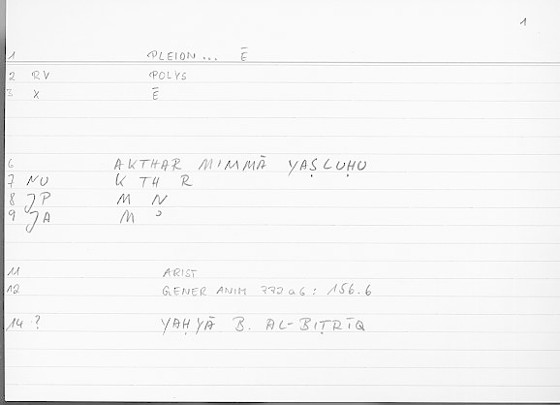 1
1 PLEION... Ē
2 RV POLYS
3 X Ē
6 AKTHAR MIMMĀ YAṢLUḤU
7 NU K TH R
8 JP M N
9 JA M ʾ
11 ARIST
12 GENER ANIM 772a6: 156.6
14 ? YAḤYĀ B. AL-BIṬRĪQ